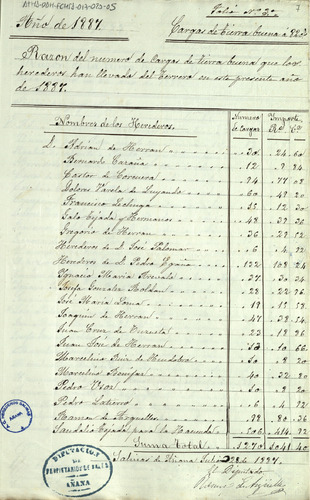 AMB-0011-FCMSA-017-023-05
Folio Nº 3º
7
Año de 1887.
Cargas de tierra buena a 82 cs
Razon del numero de cargas de tierra buena que los
herederos han llevado del terrero en este presente año
de 1887.
Nombres de los Herederos. Numero de Cargas Importe Rs Cs
D. Adrian de Herran 30 24 60
Bernardo Caraña 12 9 84
Castor de Corcuera 94 77 08
Dolores Varela de Luyando 60 49 20
Francisco Lechuga 15 12 30
Galo Tejada y Hermanos 48 39 36
Gregorio de Herran 36 29 52
Herederos de D. José Palomar 6 4 92
Herederos de D. Pedro Ygaña 132 108 24
Ygnacio Maria Arevalo 37 30 34
Josefa Gonzalez Roldan 28 22 96
José Maria Loma 19 15 58
Joaquin de Herran 47 38 54
Juan Cruz de Unzueta 23 18 86
Juan José de Herran 13 10 66
Marcelino Ruiz de Mendolea 10 8 20
Marcelino Bonifaz 40 32 80
Pedro Usor 10 8 20
Pedro Latierro 6 4 92
Ramon de Arguelles 98 80 36
Sandalio Tejada para la Hacienda 506 414 92
Suma total 1270 1041 40
Salinas de Añana Julio 28 de 1887.
El Diputado
Ramon de Arguelles
DIPUTACION
DE
PROPIETARIOS DE SALINAS
AÑANA